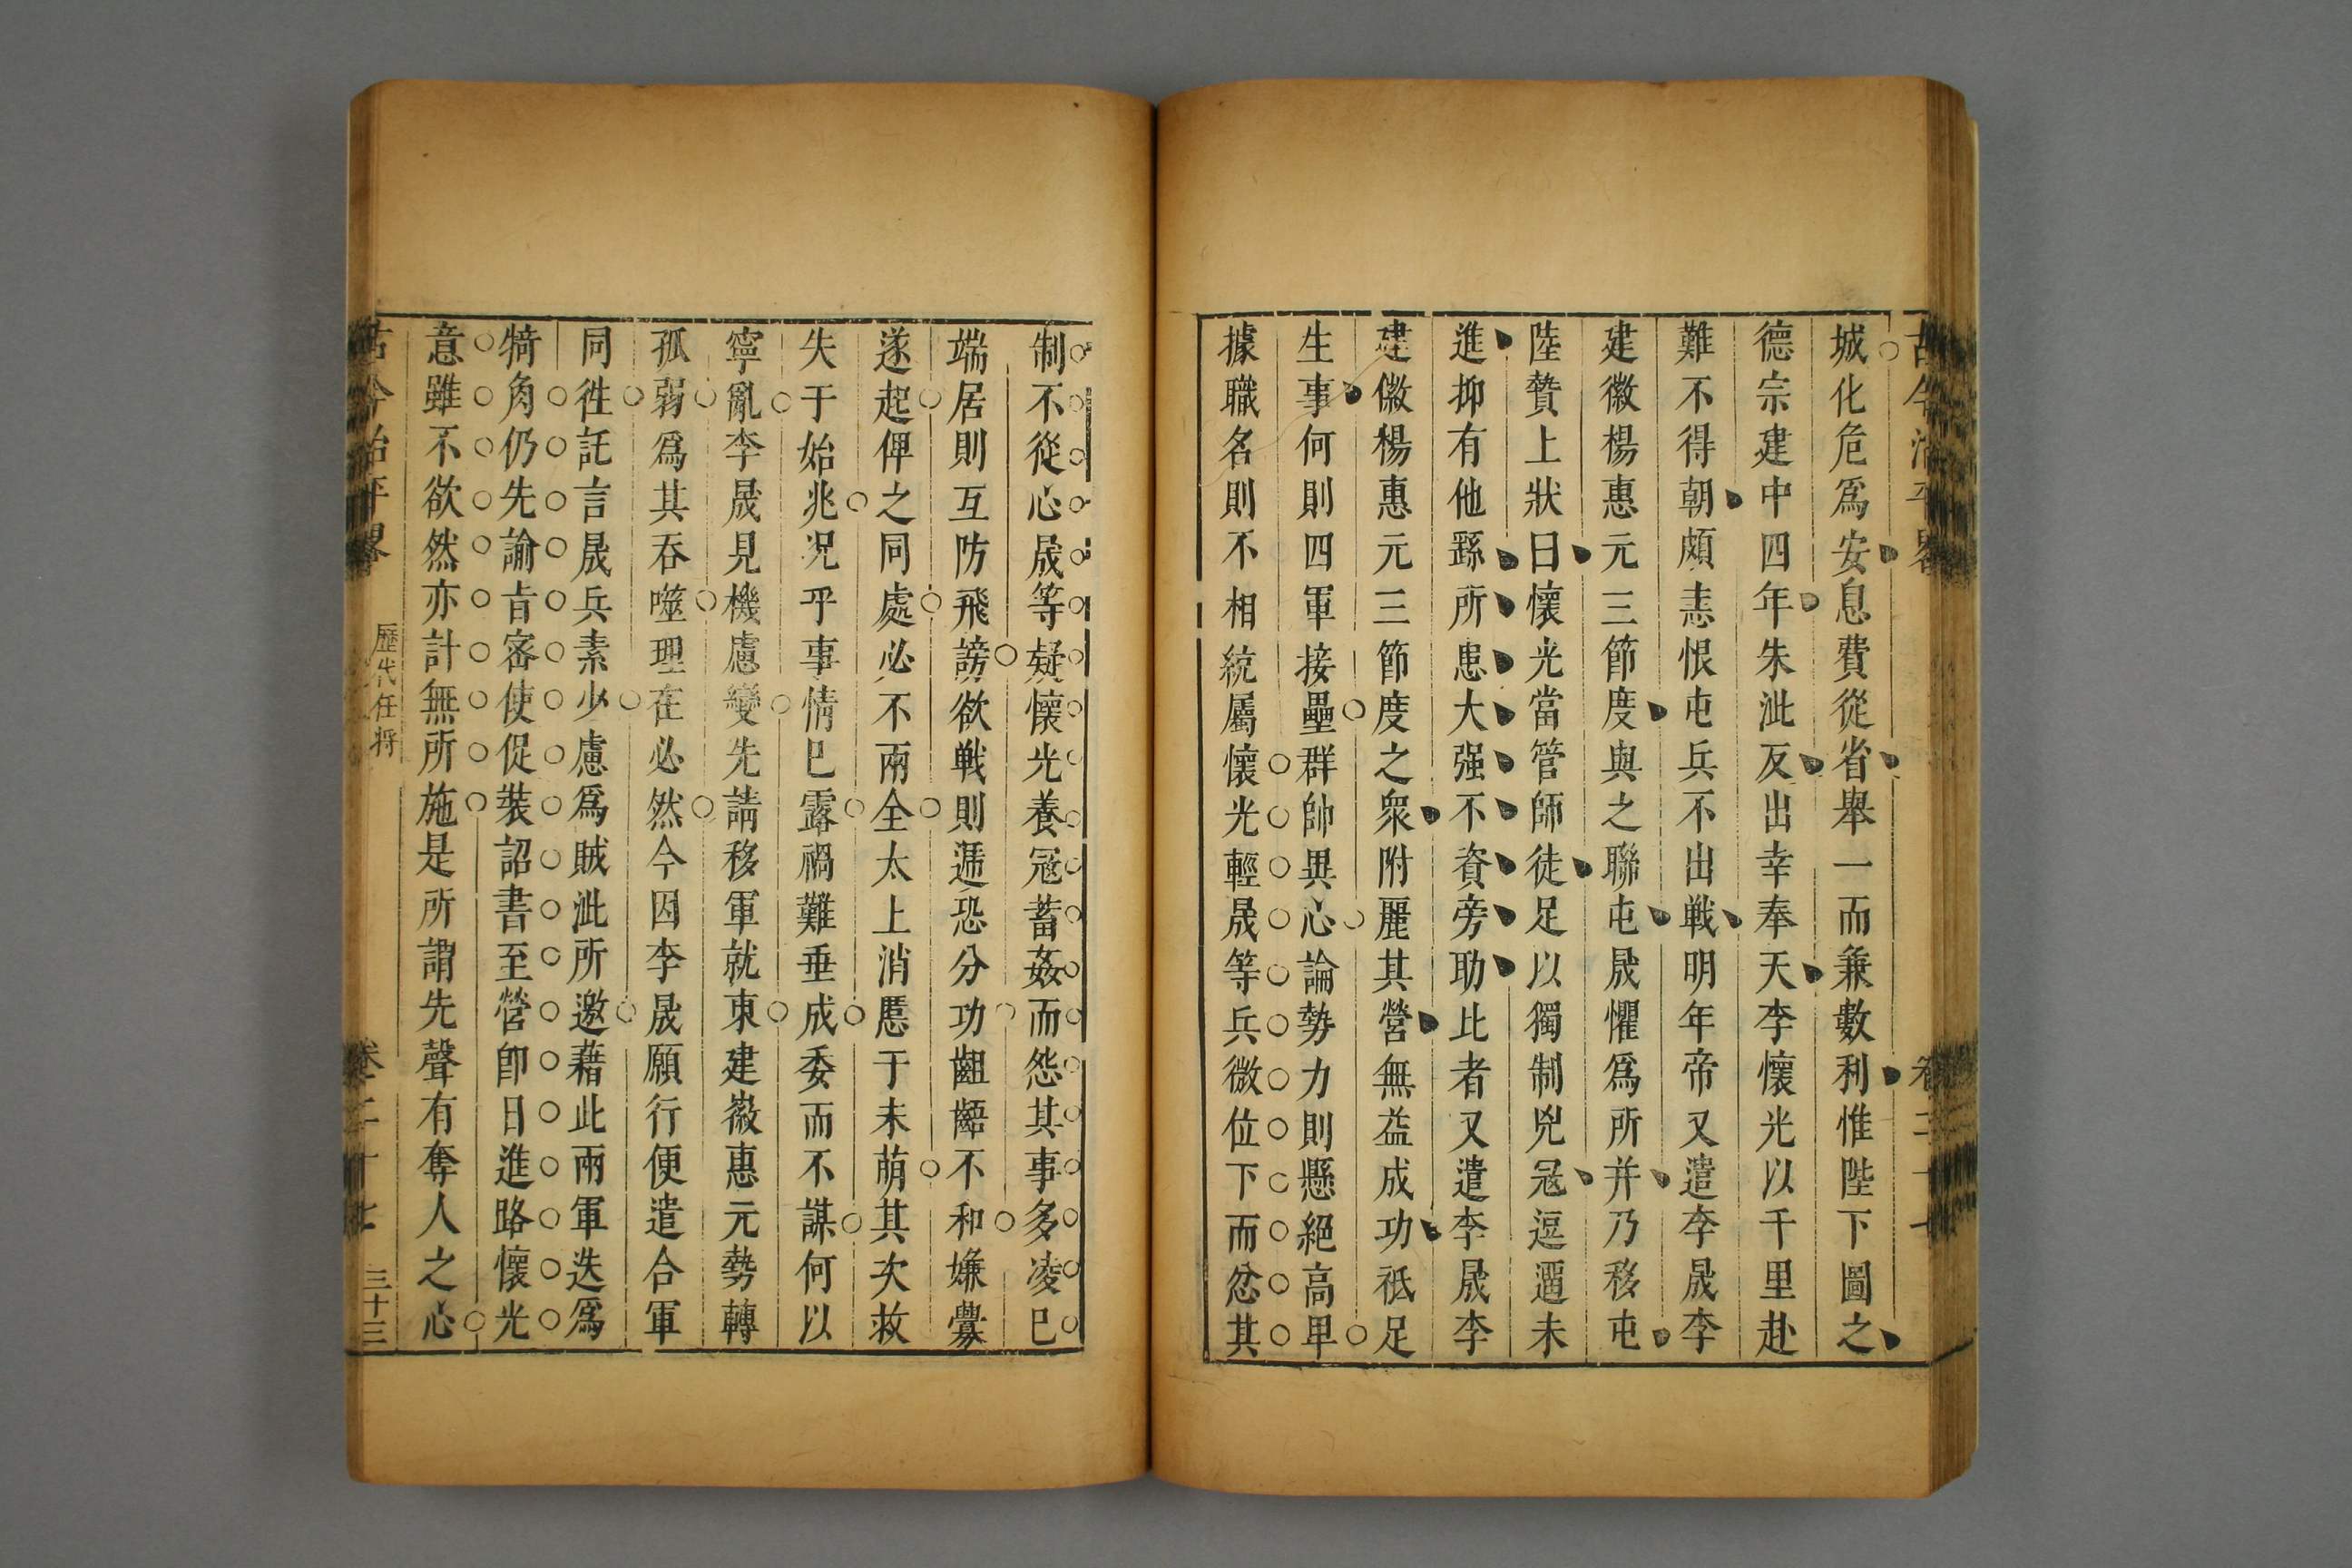 城化危爲安息費從省舉一而兼數利惟陛下圖之
德宗建中四年朱泚反出幸奉天李懷光以千里赴
難不得朝頗恚恨屯兵不出戰明年帝又遣李晟李
建徽楊惠元三節度與之聯屯晟懼爲所并乃移屯
陸贄上狀曰懷光當管師徒足以獨制兇冦逗遛未
進抑有他繇所患大强不資旁助比者又遣李晟李
建徽楊惠元三節度之衆附麗其營無益成功祗足
生事何則四軍接壘群帥異心論勢力則懸絕高卑
據職名則不相統屬懷光輕晟等兵微位下而忿其
制不從心晟等疑懷光養冦蓄姦而怨其事多凌已
端居則互防飛謗欲戰則遞恐分功齟齬不和嫌釁
遂起俾之同處必不兩全太上消慝于未萌其次救
失于始兆况乎事情已露禍難垂成委而不謀何以
寧亂李晟見機慮變先請移軍就東建徽惠元勢轉
孤弱爲其吞噬理在必然今因李晟願行便遣合軍
同徃託言晟兵素少慮爲賊泚所邀藉此兩軍迭爲
犄角仍先諭旨密使促裝詔書至營卽日進路懷光
意雖不欲然亦計無所施是所謂先聲有奪人之心
古今治平畧 歷代任將 卷二十七 三十三